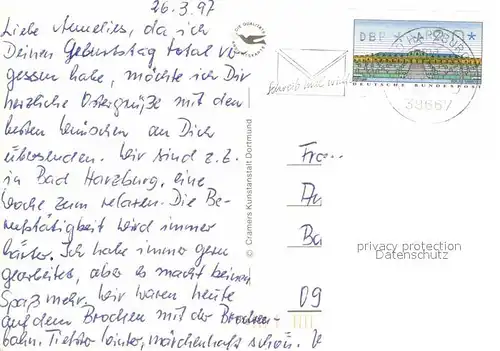 26.3.97
Liebe Annelies, da ich
Deinen Geburtstag total ver-
gessen habe, möchte ich Dir
herzliche Ostergrüße mit den
besten Wünschen an Dich
übersenden. Wir sind z.Z.
in Bad Harzburg, eine
Woche zum relaxen. Die Be-
rufstätigkeit wird immer
härter. Ich habe immer gern
gearbeitet, aber es macht keinen
Spaß mehr. Wir waren heute
auf dem Brocken mit der Brocken-
bahn. Tiefster Winter, märchenhaft schön.
© Cramers Kunstanstalt Dortmund
Schreib mal wieder
DBP
DEUTSCHE BUNDESPOST
38667
Fra
Ba
09
privacy protection
Datenschutz